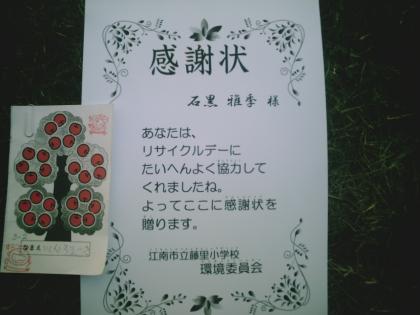 感謝状
石黒 雅季 様
あなたは、
リサイクルデーに
たいへんよく協力して
くれましたね。
よってここに感謝状を
贈ります。
江南市立藤里小学校
環境委員会
なまえ